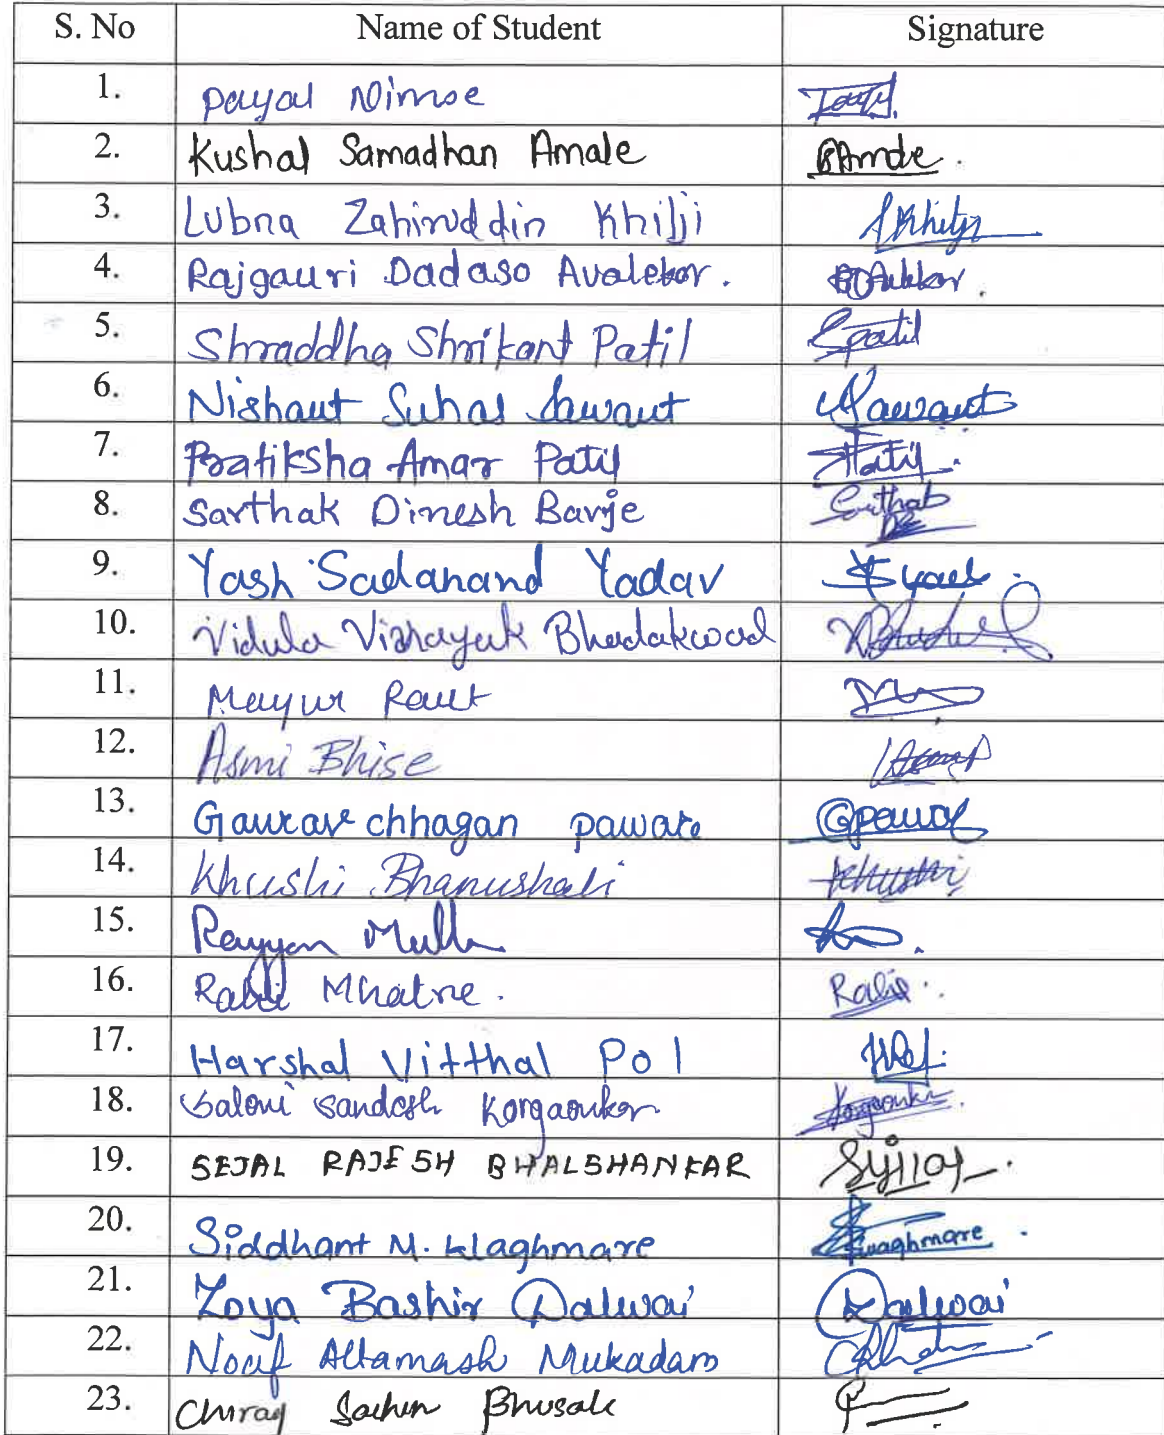 S. No Name of Student Signature
1. Payal Nimse
2. Kushal Samadhan Amale
3. Lubna Zahiruddin Khilji
4. Rajgauri Dadaso Avalekar.
5. Shraddha Shrikant Patil Spatil
6. Nishant Suhas Sawant Sawant
7. Pratiksha Amar Patil Patil.
8. Sarthak Dinesh Bavje Sarthak
9. Yash Sadanand Yadav
10. Vidula Vinayak Bhadakwad
11. Mayur Raut
12. Asmi Bhise
13. Gaurav chhagan pawara Gpawar
14. Khushi Bhanushali Khushi
15. Rayyan Mulla
16. Mhatre.
17. Harshal Vitthal Pol HPol.
18. Saloni Sandesh Korgaonkar Korgaonkar.
19. SEJAL RAJESH BHALSHANKAR
20. Siddhant M. Waghmare Swaghmare.
21. Zoya Bashir Dalwai Dalwai
22. Altamash Mukadam
23. Chirag Sachin Bhusale